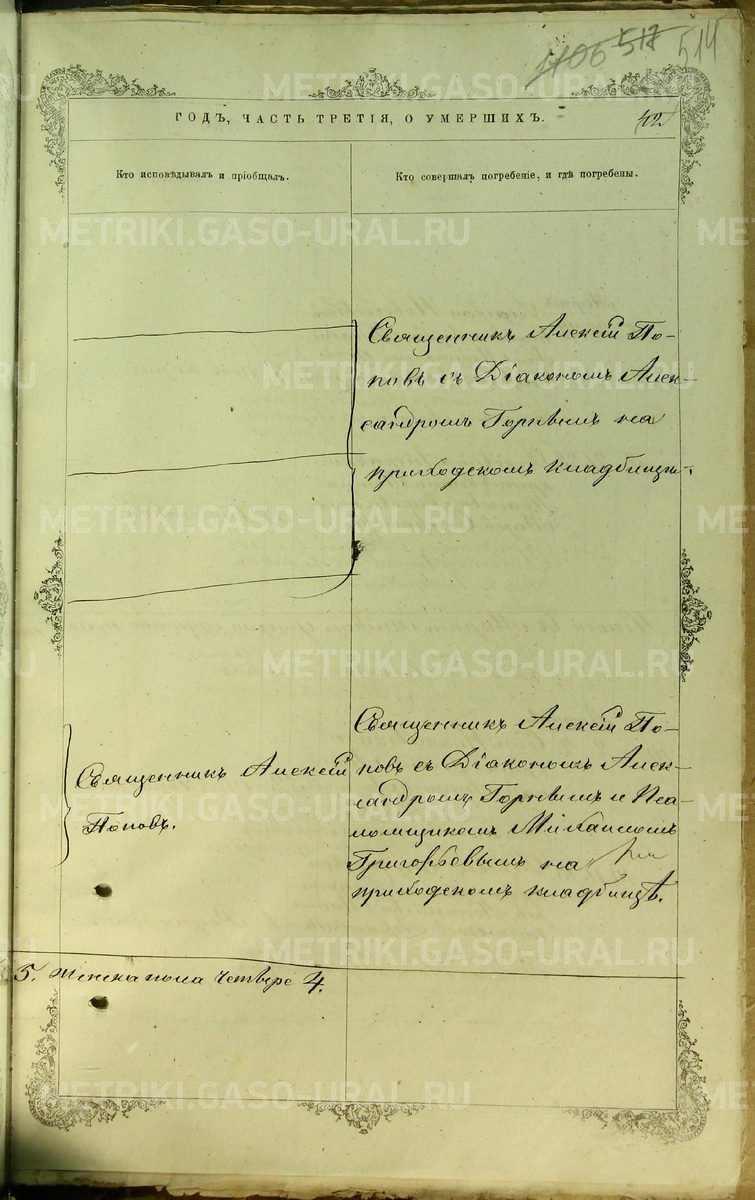 1106 517 514
ГОДЪ, ЧАСТЬ ТРЕТІЯ, О УМЕРШИХЪ.
42
Кто исповѣдывалъ и пріобщалъ.
Кто совершалъ погребеніе, и гдѣ погребены.
Священникъ Алексій По-
повъ съ Діакономъ Алек-
сандромъ Горнымъ на
приходскомъ кладбищѣ.
Священникъ Алексій
Поповъ.
Священникъ Алексій По-
повъ съ Діакономъ Алек-
сандромъ Горнымъ и Пса-
ломщикомъ Михаиломъ
Григорьевымъ на
приходскомъ кладбищѣ.
5. женска пола четверо 4.
METRIKI.GASO-URAL.RU